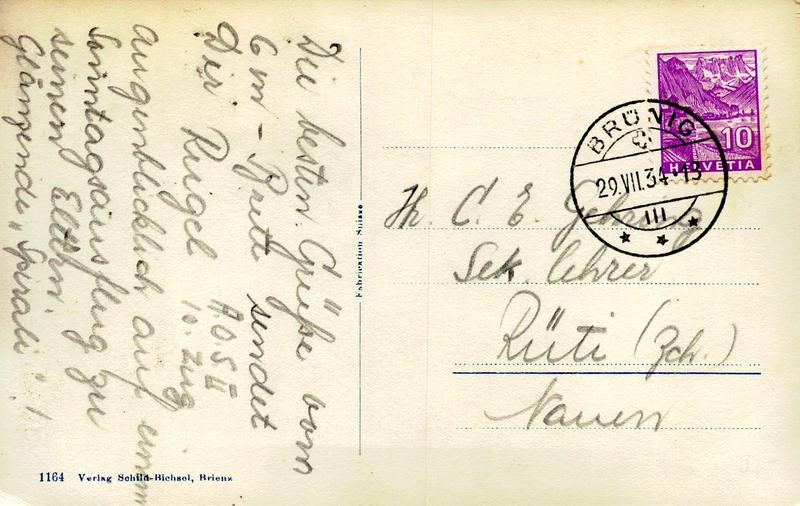 Die besten Grüße vom
6 m - Brett sendet
Dir Rugel A.O.S. II
10. Zug
augenblicklich auf einem
Sonntagsausflug zu
seinen Eltern.
Glänzende "Spirale"!
Fabrication Suisse
1164 Verlag Schild-Bichsel, Brienz
BRÜNIG
29.VII.34-13
III
10
HELVETIA
Hr. C. E. Gehring
Sek. lehrer
Rüti (Zch.)